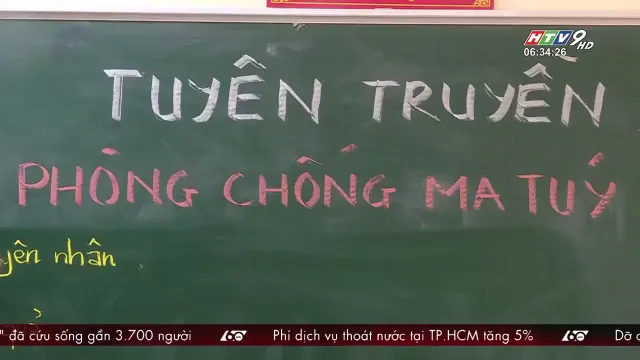 HTV9 HD
06:34:26
TUYÊN TRUYỀN
PHÒNG CHỐNG MA TUÝ
yên nhân
" đã cứu sống gần 3.700 người 60 Phí dịch vụ thoát nước tại TP.HCM tăng 5% 60 Dỡ